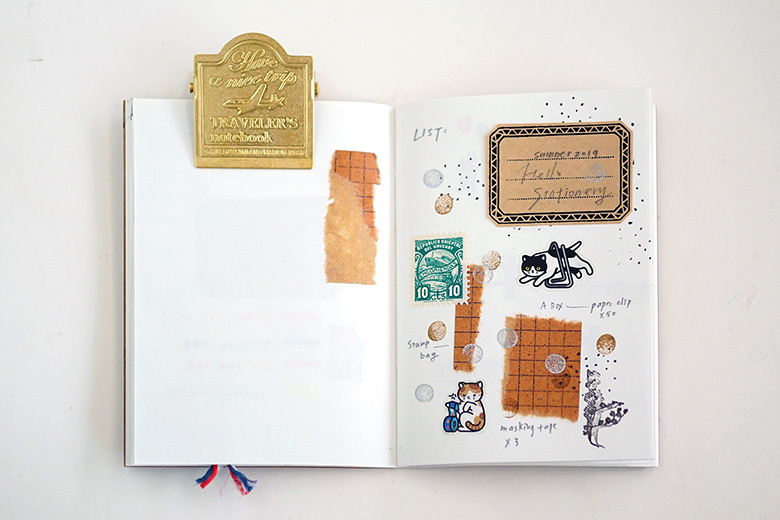 Have
a nice trip
TRAVELER'S
notebook
LIST:
summer 2019
Hello
Stationery
REPUBLICA ORIENTAL
DEL URUGUAY
ENCOMIENDAS
10 10
A Box — paper clip
x50
Stamp —
bag
masking tape
x 3